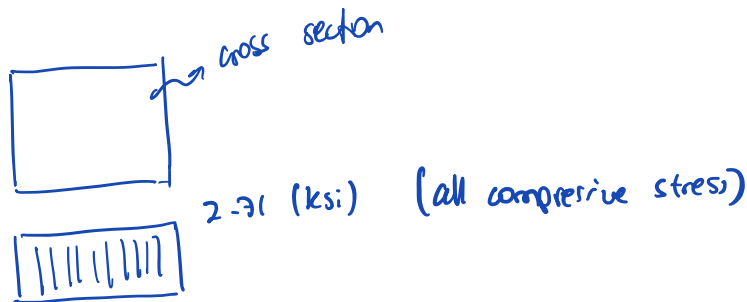 cross section
2.71 (ksi) (all compressive stress)